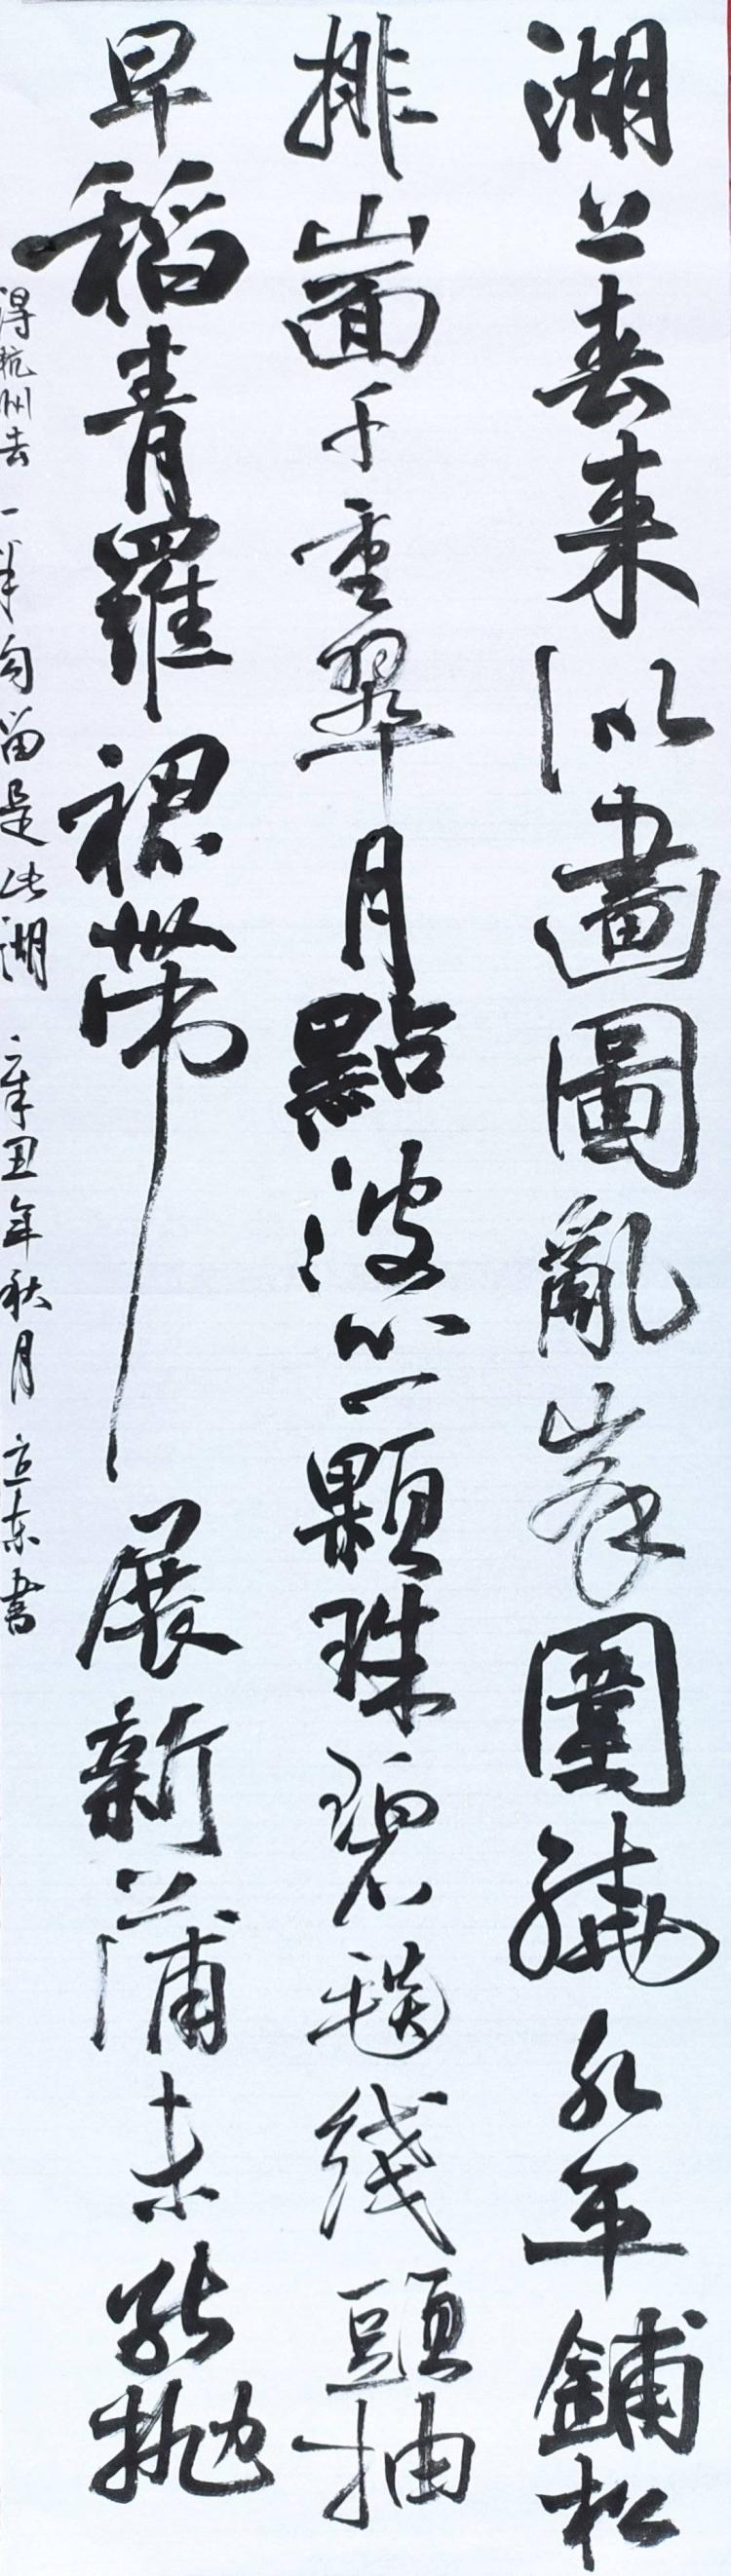 湖上春來似畫圖亂峰圍繞水平鋪松
排山面千重翠月點波心一顆珠碧毯綫頭抽
早稻青羅裙帶展新蒲未能拋
得杭州去一半勾留是此湖 辛丑年秋月 立东書